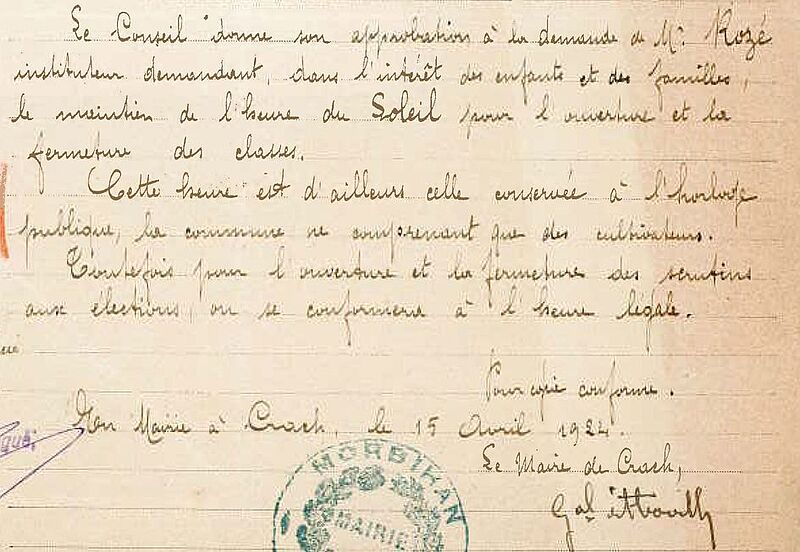 Le Conseil donne son approbation à la demande de Mr. Rozé
instituteur demandant, dans l'intérêt des enfants et des familles,
le maintien de l'heure du Soleil pour l'ouverture et la
fermeture des classes.
Cette heure est d'ailleurs celle conservée à l'horloge
publique, la commune ne comprenant que des cultivateurs.
Toutefois pour l'ouverture et la fermeture des scrutins
aux élections, on se conformera à l'heure légale.
Pour copie conforme.
En Mairie à Crach, le 15 Avril 1924.
Le Maire de Crach,
MORBIHAN
MAIRIE